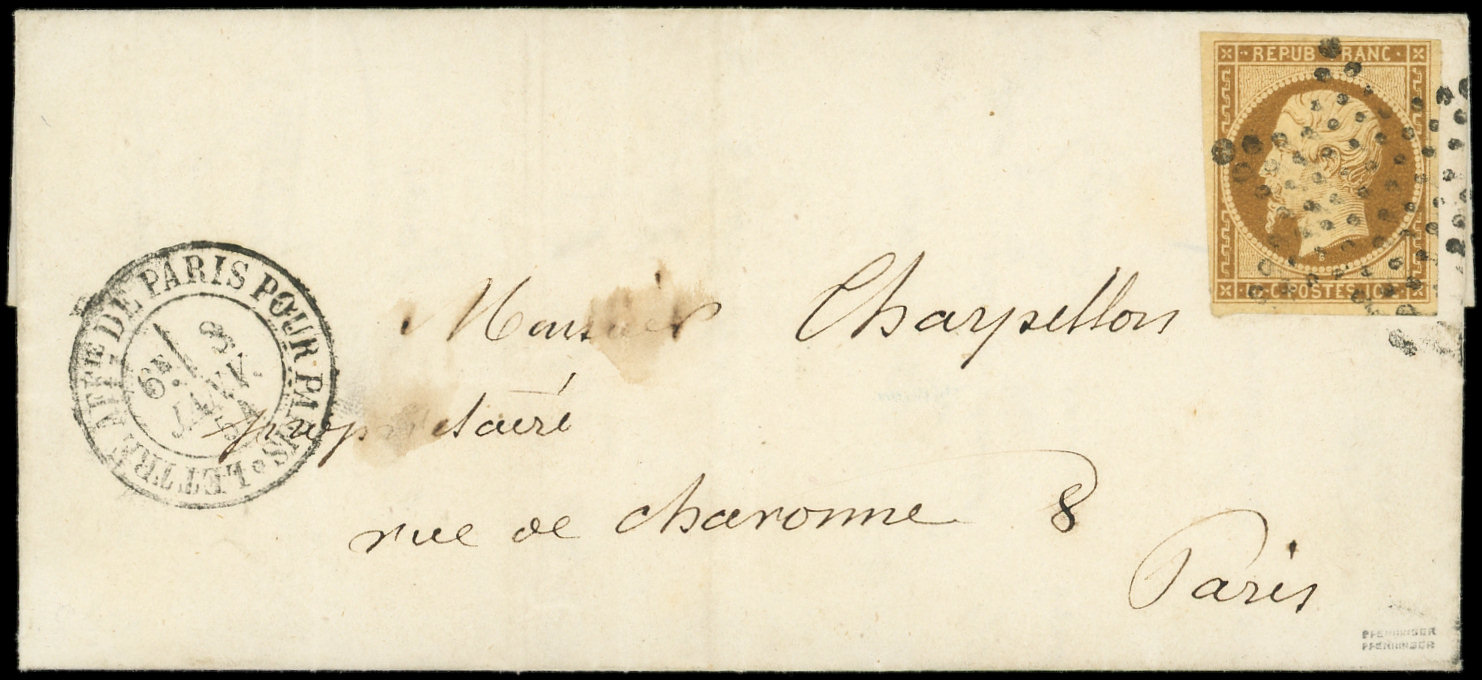 REPUB FRANC
10 C POSTES 10 C
LETTRE AFFie DE PARIS POUR PARIS
6E
8
JANV.
Monsieur Charpillon
propriétaire
rue de charonne 8
Paris
PFENNINGER
PFENNINGER